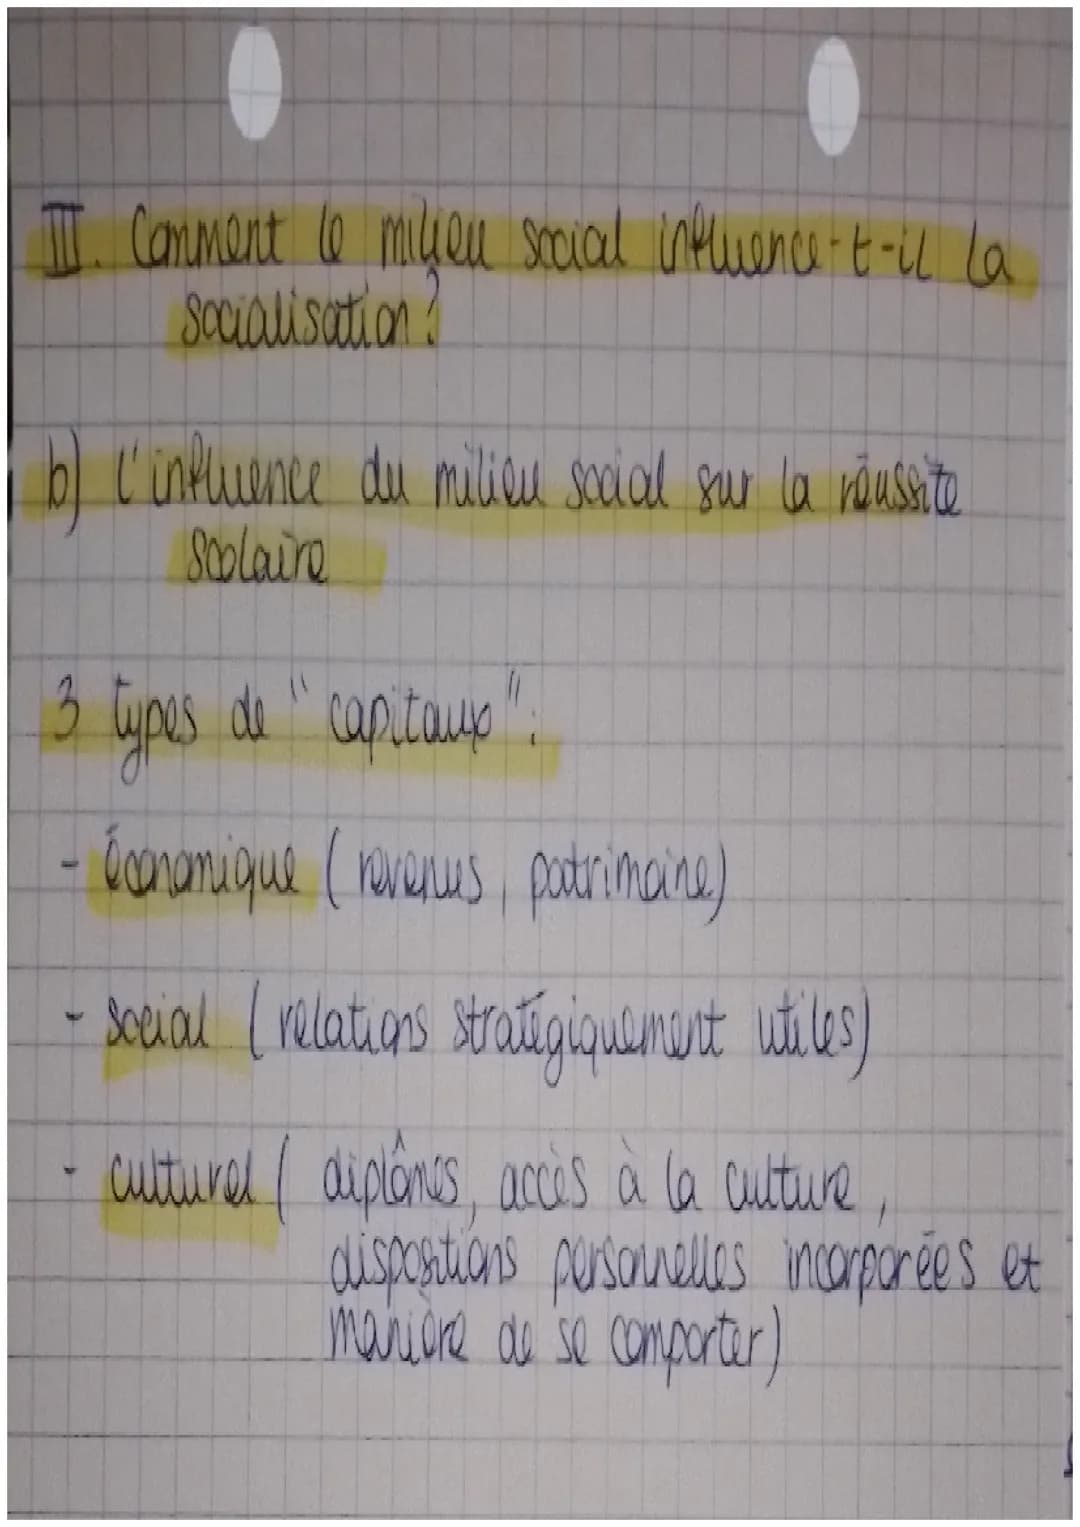 III. Comment le milieu social influence-t-il la
socialisation ?
b) l'influence du milieu social sur la réussite
scolaire
3 types de "capitaux" :
- économique ( revenus, patrimoine)
- social ( relations stratégiquement utiles)
- culturel ( diplômes, accès à la culture,
dispositions personnelles incorporées et
manière de se comporter)